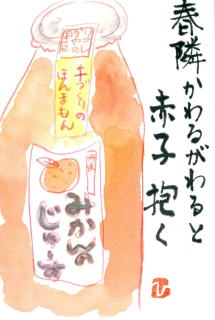 春隣かわるがわると
赤子抱く
手づくりの
ほんまもん
みかんの
じゅーす
ひ